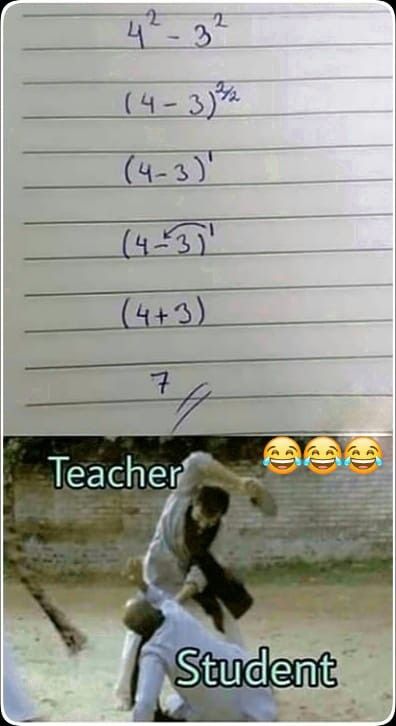 4² - 3²
(4 - 3)^2/2
(4-3)¹
(4-3)¹
(4+3)
7
Teacher
Student